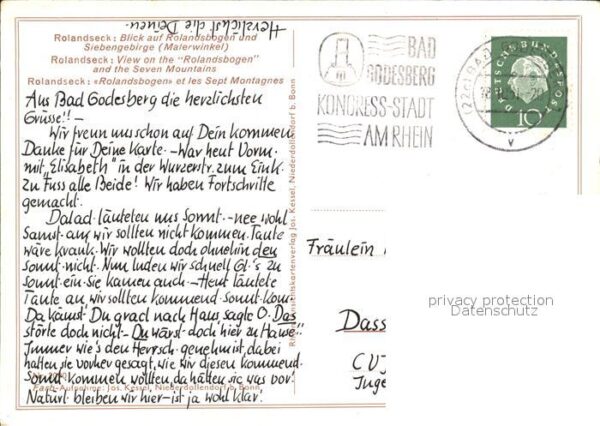 Herzlichst die Deinen.
Rolandseck: Blick auf Rolandsbogen und
Siebengebirge (Malerwinkel)
Rolandseck: View on the "Rolandsbogen"
and the Seven Mountains
Rolandseck: «Rolandsbogen» et les Sept Montagnes
Aus Bad Godesberg die herzlichsten
Grüsse!! –
Wir freun uns schon auf Dein kommen
Danke für Deine Karte. – War heut Vorm.
mit „Elisabeth" in der Wurzerstr. zum Eink.
zu Fuss alle Beide! Wir haben Fortschritte
gemacht.
läuteten uns Sonnt. – nee wohl
Samst. an wir sollten nicht kommen. Tante
wäre krank. Wir wollten doch ohnehin den
Sonnt. nicht. Nun luden wir schnell Gl.'s zu
Sonnt. ein. sie kamen auch – Heut läutete
Tante an wir sollten kommend. Sonnt. kom.
Da kämst Du grad nach Haus sagte O. Das
störte doch nicht – Du wärst doch hier zu Hause!!
Immer wie's den Herrsch. genehm ist, dabei
hatten sie vorher gesagt, wie wir diesen kommend.
Sonnt. kommen wollten, da hätten sie was vor!
Naturl. bleiben wir hier – ist ja wohl klar!
Foto-Aufnahme: Jos. Kessel, Niederdollendorf b. Bonn
Jos. Kessel, Niederdollendorf b. Bonn
BAD
GODESBERG
KONGRESS-STADT
AM RHEIN
DEUTSCHE BUNDESPOST
10
Fräulein
Dass
CVJ
Juge
privacy protection
Datenschutz